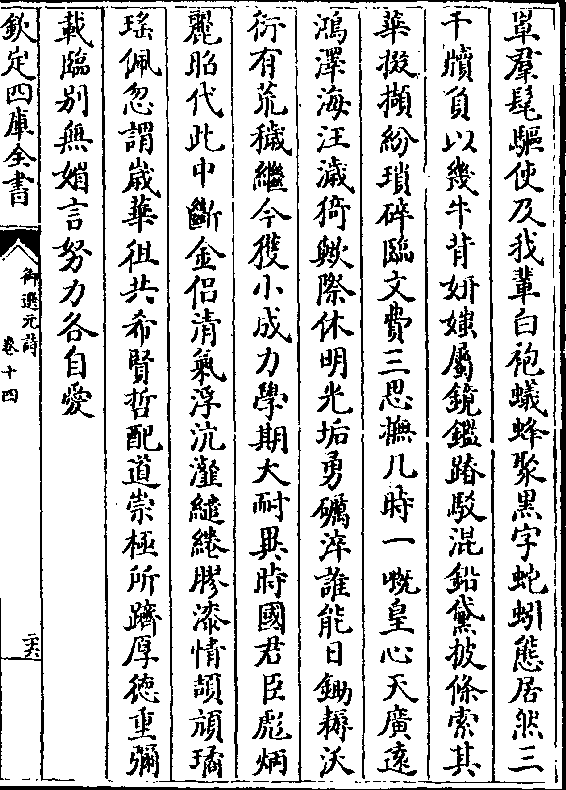 單羣髦驅使及我軰白袍蟻蜂聚黒字蛇蚓態居然三
千牘負以幾牛背妍媸屬鏡鑑踳駁混鉛黛披條索其
華掇擷紛瑣碎臨文費三思撫几時一嘅皇心天廣逺
鴻澤海汪濊猗歟際休明光垢勇礪淬誰能日鋤耨沃
衍有荒穢繼今獲小成力學期大耐異時國君臣彪炳
麗昭代此中斷金侣清氣浮沆瀣繾綣膠漆情頡頏璚
瑶佩忽謂嵗華徂共希賢哲配道崇極所躋厚徳重彌
載臨别無媚言努力各自愛
欽定四庫全書
御選元詩
卷十四
二六